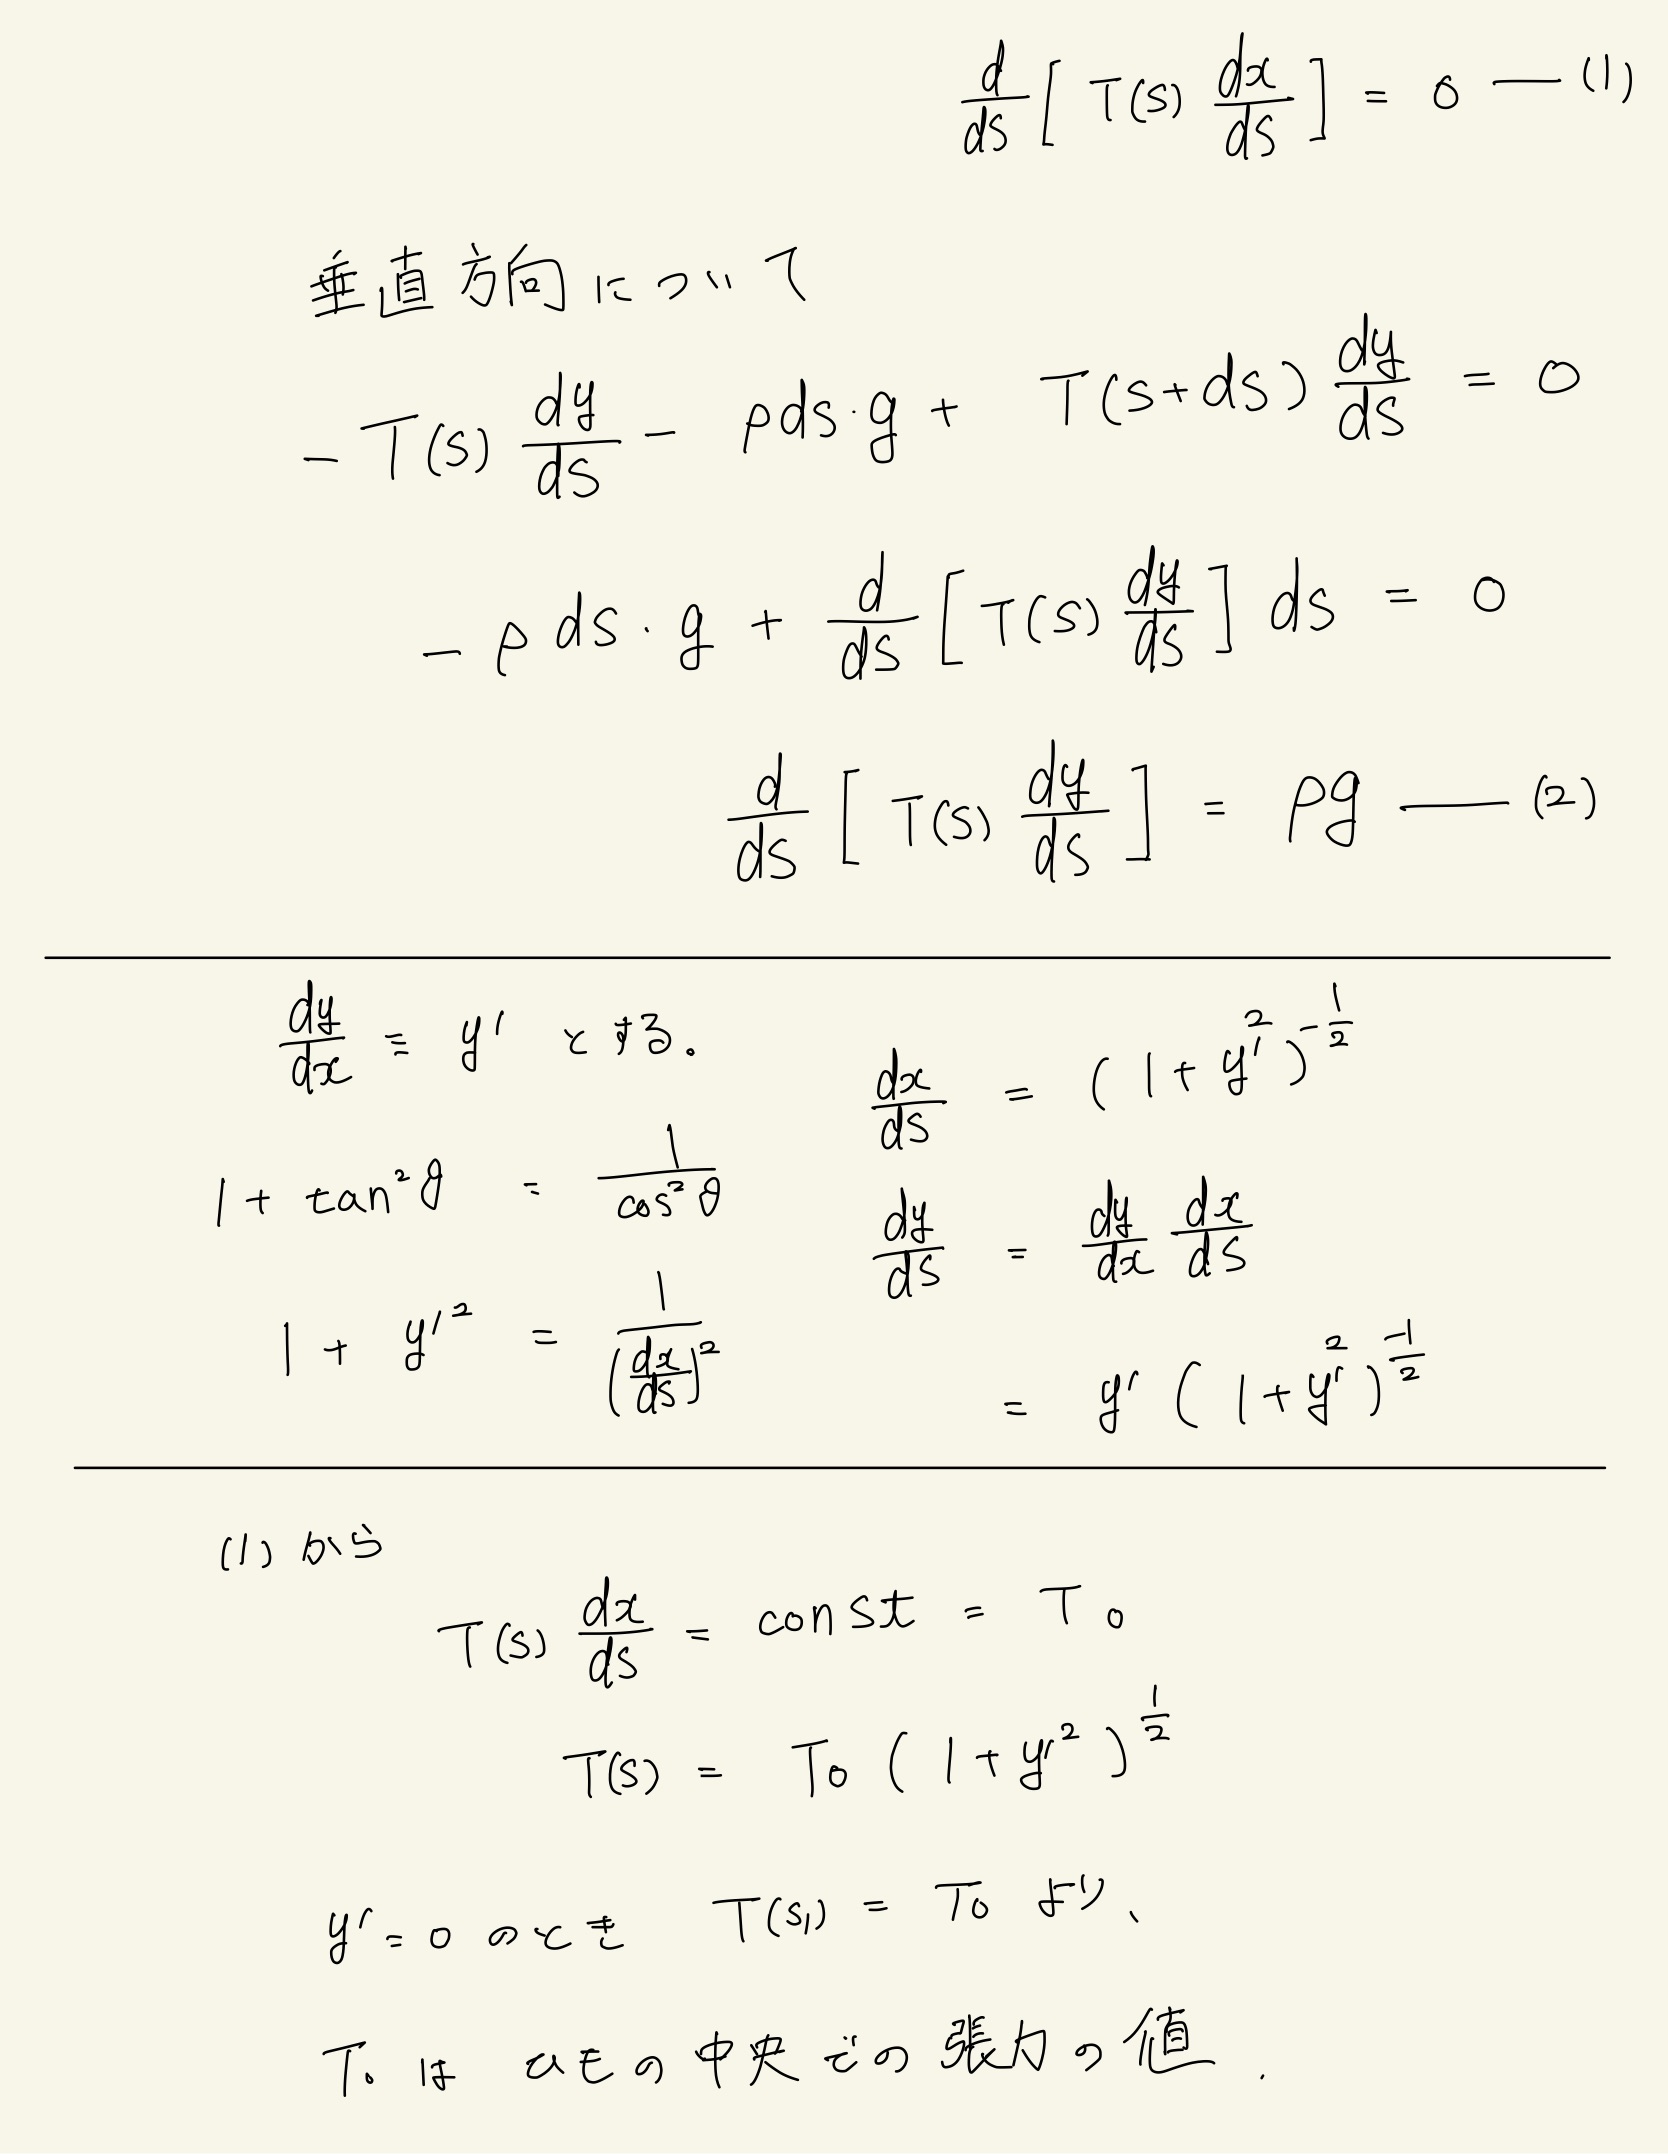 d/ds [ T(s) dx/ds ] = 0 — (1)
垂直方向について
- T(s) dy/ds - ρds·g + T(s+ds) dy/ds = 0
- ρ ds·g + d/ds [ T(s) dy/ds ] ds = 0
d/ds [ T(s) dy/ds ] = ρg — (2)
dy/dx ≡ y' とする。
1 + tan²θ = 1/cos²θ
1 + y'² = 1/(dx/ds)²
dx/ds = (1 + y'²)^(-1/2)
dy/ds = dy/dx dx/ds
= y' (1 + y'²)^(-1/2)
(1) から
T(s) dx/ds = const = T₀
T(s) = T₀ (1 + y'²)^(1/2)
y' = 0 のとき T(s₁) = T₀ より、
T₀ は ひもの中央での張力の値.